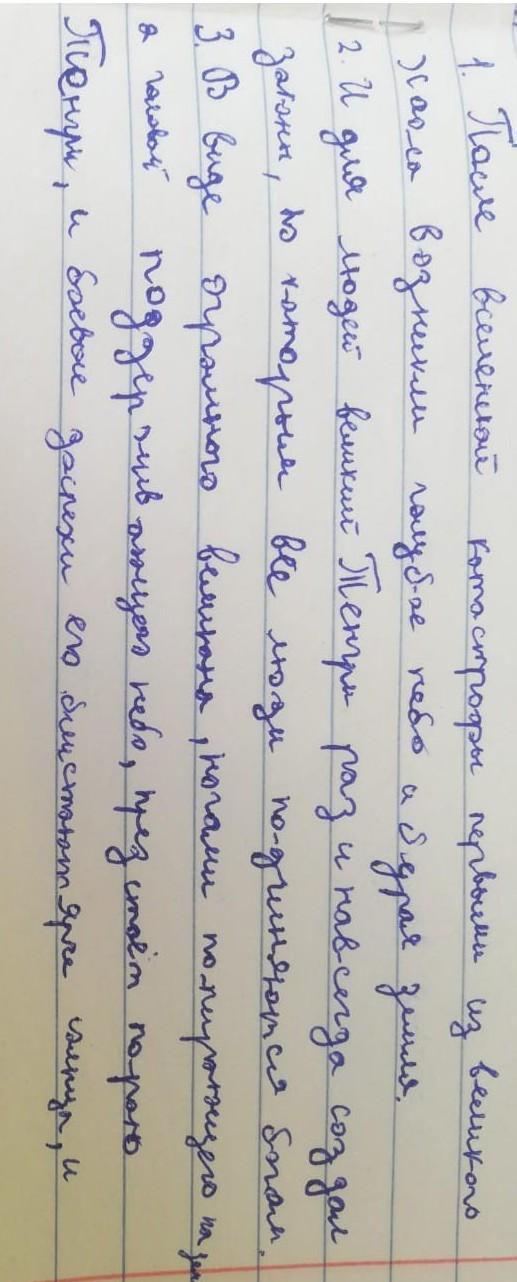 1. После вселенской катастрофы первыми из великого
хаоса возникли голубое небо и бурая земля.
2. И для людей великий Тенгри раз и навсегда создал
законы, по которым все люди подчиняются богам.
3. В виде огромного великана, ногами попирающего на зем
а головой поддерживающего небо, предстаёт порою
Тенгри, и боевые доспехи его блистают ярче солнца, и